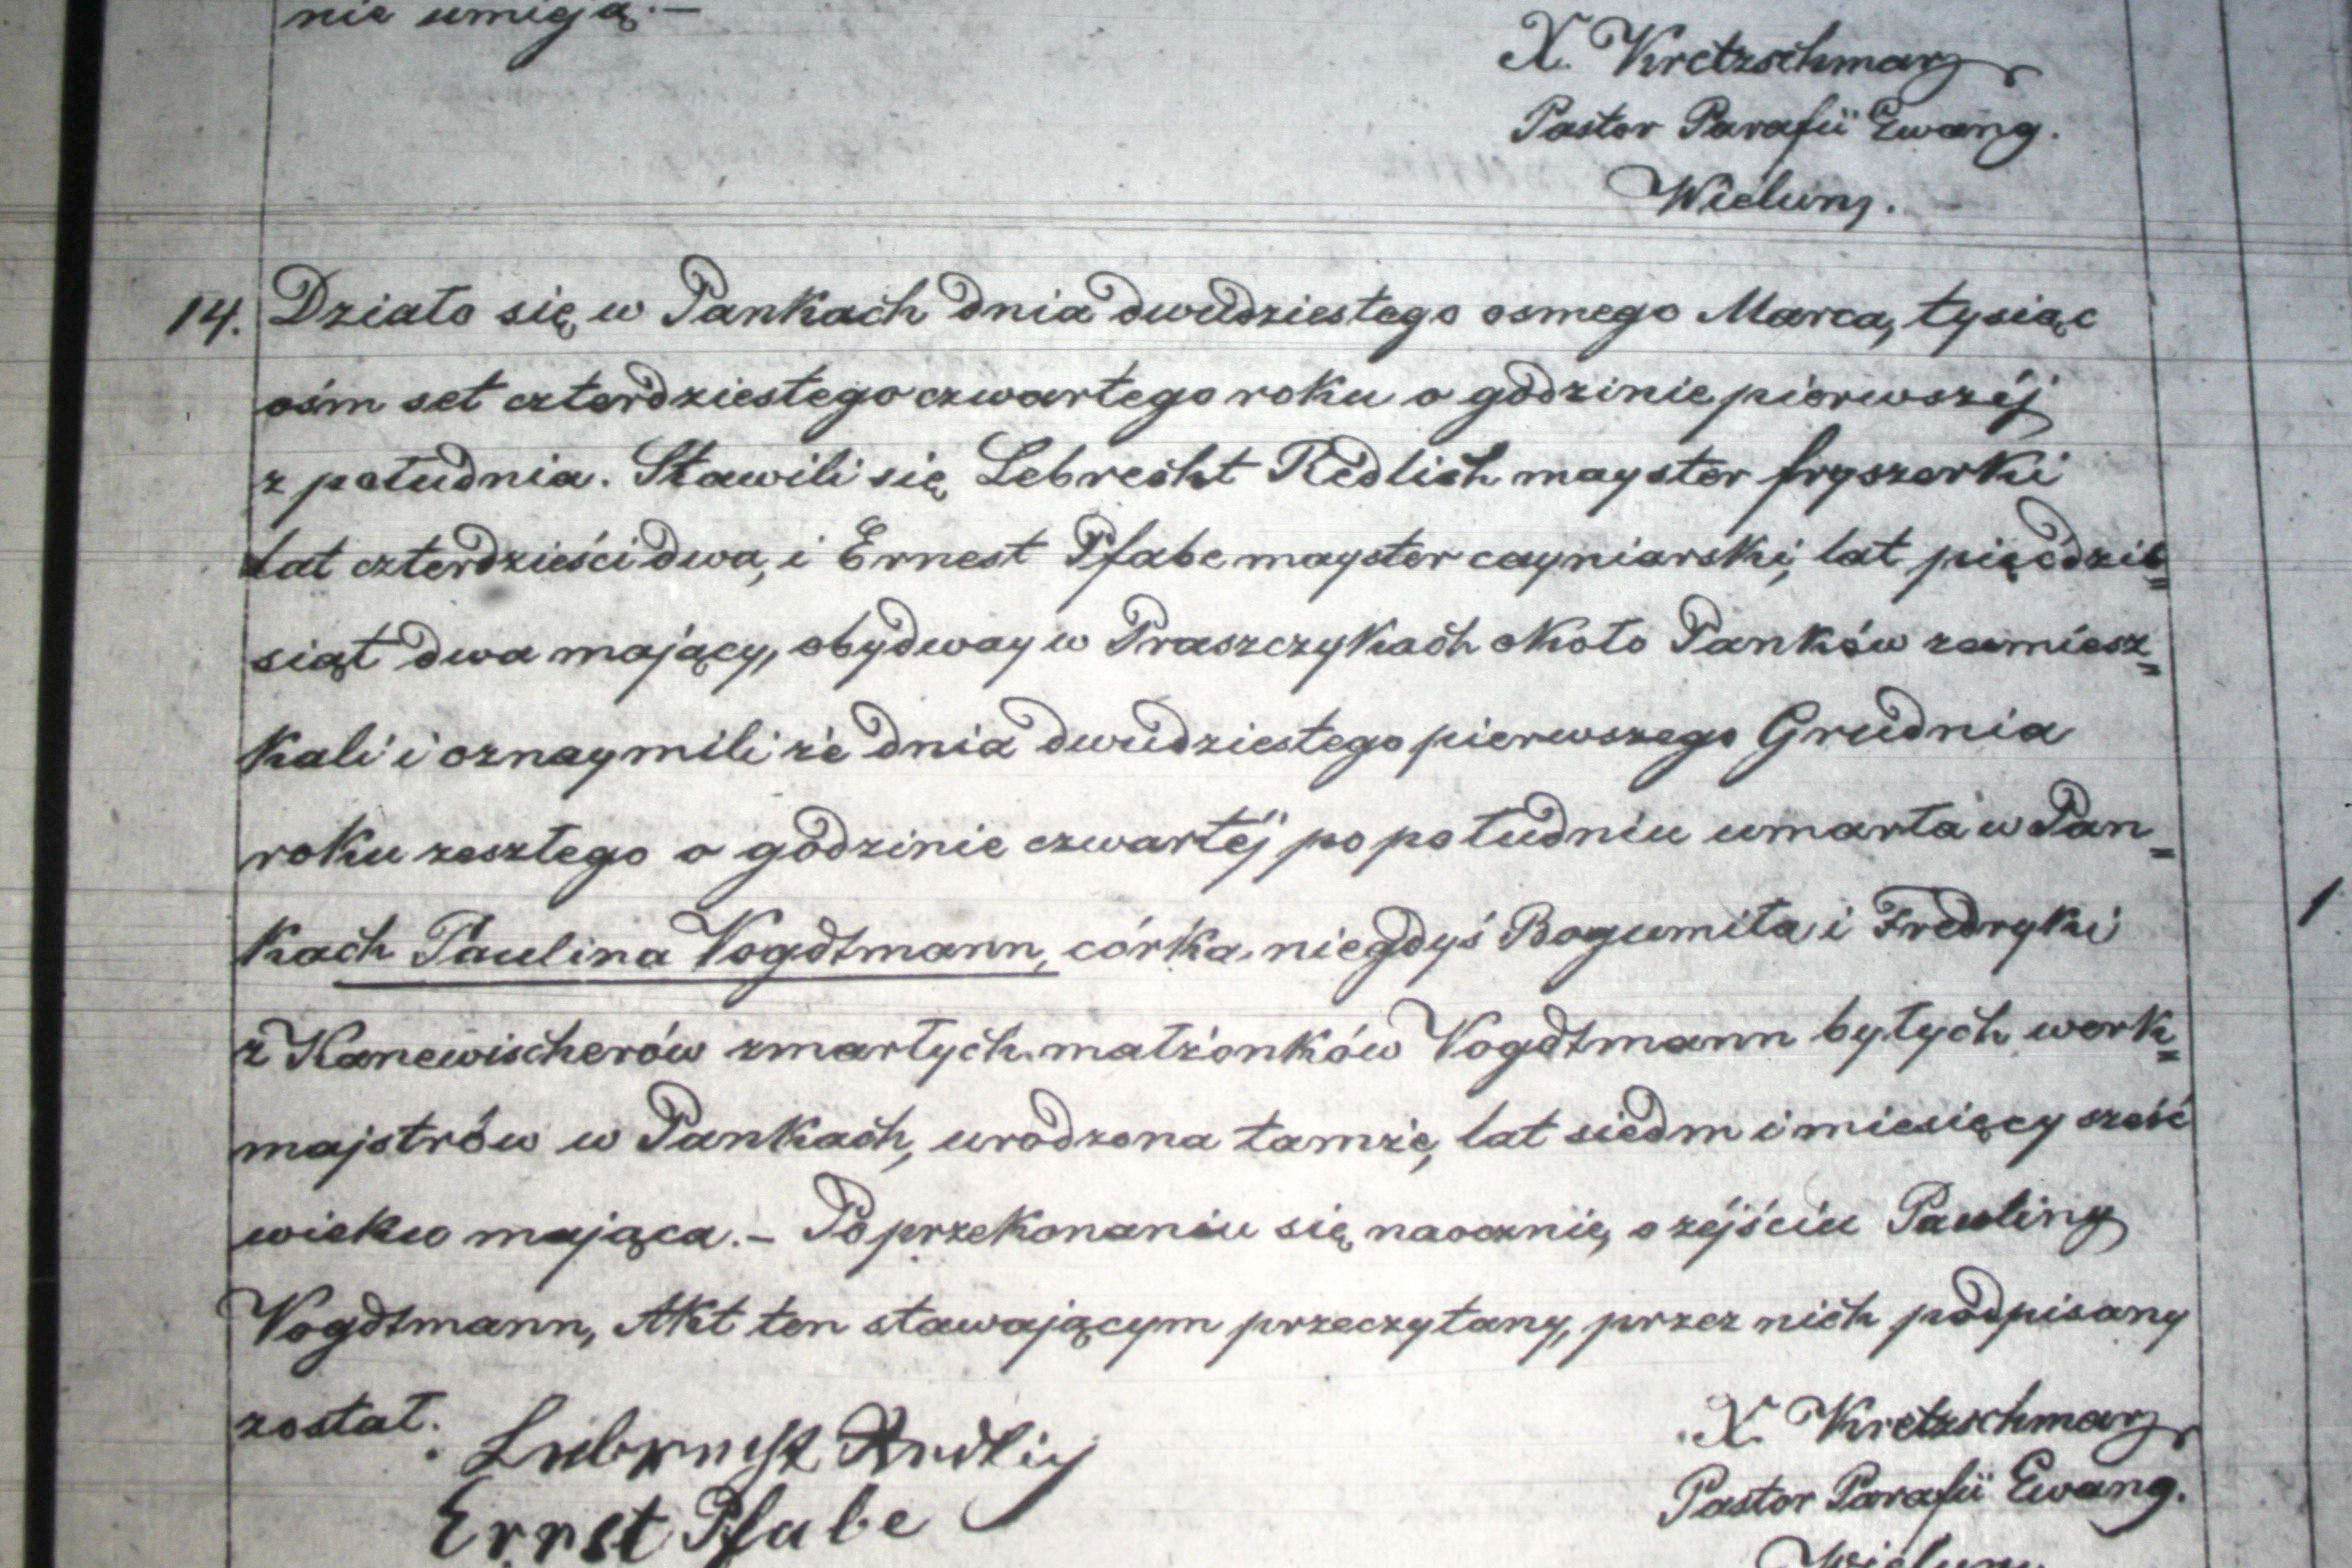 nie umieją.–
X. Kretzschmar
Pastor Parafii Ewang.
Wieluny.
14. Działo się w Pankach dnia dwudziestego osmego Marca, tysiąc
ośm set czterdziestego czwartego roku o godzinie pierwszéj
z południa. Stawili się Lebrecht Redlich mayster fryszerki
lat czterdzieści dwa, i Ernest Pfabe mayster cayniarski, lat pięćdzie=
siąt dwa mający, obydway w Praszczykach około Panków zamiesz=
kali i oznaymili że dnia dwudziestego pierwszego Grudnia
roku zeszłego o godzinie czwartéj po południu umarła w Pan=
kach Paulina Vogdtmann, córka niegdyś Bogumiła i Fredryki
z Kanewischerów zmarłych małżonków Vogdtmann byłych werk=
majstrów w Pankach, urodzona tamże, lat siedm i miesięcy sześć
wieku mająca.– Po przekonaniu się naocznie, o zéjściu Pauliny
Vogdtmann, Akt ten stawającym przeczytany, przez nich podpisany
został.
Lebrecht Redlich
X. Kretzschmar
Ernst Pfabe
Pastor Parafii Ewang.
Wieluny